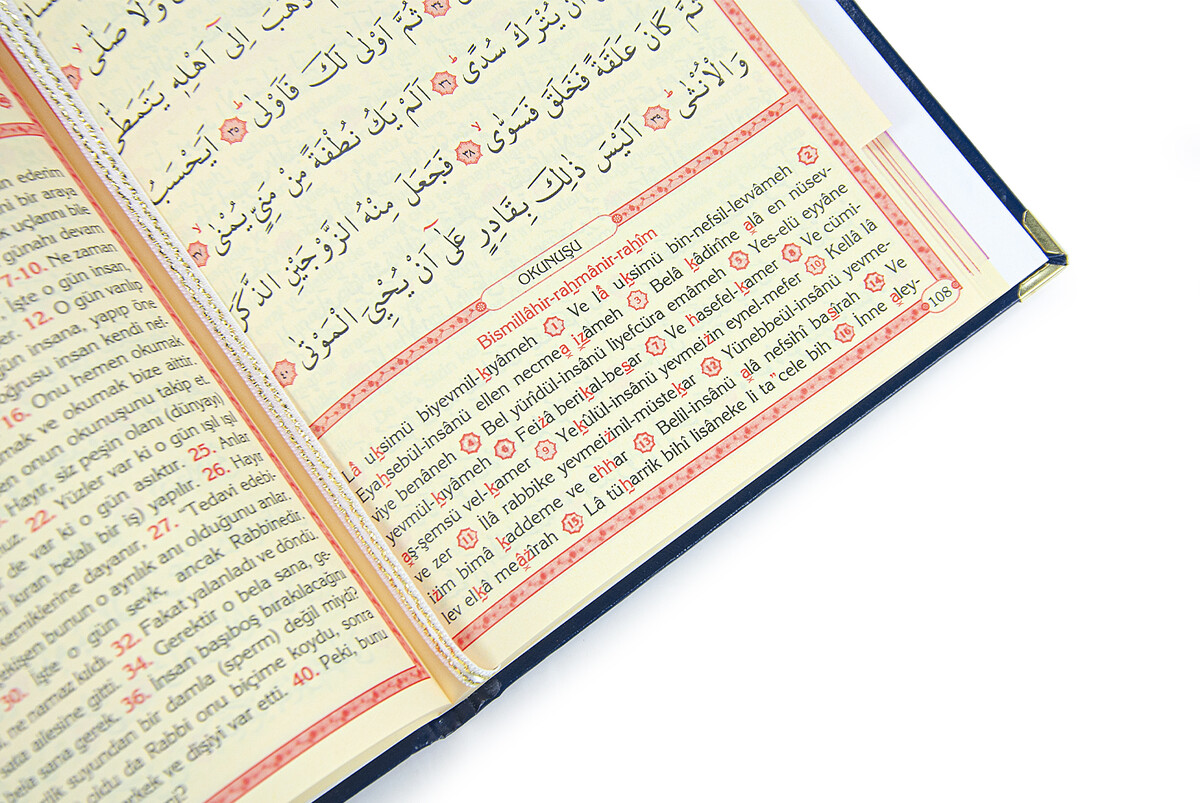 وَلَا صَلّٰى
ذَهَبَ اِلٰٓى اَهْلِهٖ يَتَمَطّٰى
٣٤ ثُمَّ اَوْلٰى لَكَ فَاَوْلٰى ٣٥ اَيَحْسَبُ
اَنْ يُتْرَكَ سُدًى ٣٦ اَلَمْ يَكُ نُطْفَةً مِنْ مَنِيٍّ يُمْنٰى ٣٧
ثُمَّ كَانَ عَلَقَةً فَخَلَقَ فَسَوّٰى ٣٨ فَجَعَلَ مِنْهُ الزَّوْجَيْنِ الذَّكَرَ
وَالْاُنْثٰى ٣٩ اَلَيْسَ ذٰلِكَ بِقَادِرٍ عَلٰٓى اَنْ يُحْيِيَ الْمَوْتٰى ٤٠
OKUNUŞU
Bismillâhir-raḥmânir-raḥîm
Lâ uksimü biyevmil-kıyâmeh 1 Ve lâ uksimü bin-nefsil-levvâmeh 2
Eyahsebül-insânü ellen necmea ızâmeh 3 Belâ kâdirîne alâ en nüsev-
viye benâneh 4 Bel yürîdül-insânü liyefcüra emâmeh 5 Yes-elü eyyâne
yevmül-kıyâmeh 6 Feizâ berikal-besar 7 Ve hasefel-kamer 8 Ve cümi-
aş-şemsü vel-kamer 9 Yekûlül-insânü yevmeizin eynel-mefer 10 Kellâ lâ
ve zer 11 İlâ rabbike yevmeizinil-müstekar 12 Yünebbeül-insânü yevme-
izim bimâ kaddeme ve ehhar 13 Belil-insânü alâ nefsihî basîrah 14 Ve
lev elkâ meâzîrah 15 Lâ tüharrik bihî lisâneke li ta"cele bih 16 İnne aley-
108
ederim
bir araya
uçlarını bile
günahı devam
7-10. Ne zaman
İşte o gün insan,
12. O gün varılıp
gün insana, yapıp öne
oğrusu insan kendi nef-
16. Onu hemen okumak
mak ve okumak bize aittir.
onun okunuşunu takip et.
Hayır, siz peşin olanı (dünyayı)
22. Yüzler var ki o gün ışıl ışıl
de var ki o gün asıktır. 25. Anlar
kıran belalı bir iş) yapılır. 26. Hayır
kemiklerine dayanır, 27. "Tedavi edebi-
bunun o ayrılık anı olduğunu anlar.
30. İşte o gün sevk, ancak Rabbinedir.
ne namaz kıldı. 32. Fakat yalanladı ve döndü.
ailesine gitti. 34. Gerektir o bela sana, ge-
bela sana gerek. 36. İnsan başıboş bırakılacağını
suyundan bir damla (sperm) değil miydi?
oldu da Rabbi onu biçime koydu, sonra
erkek ve dişiyi var etti. 40. Peki, bunu